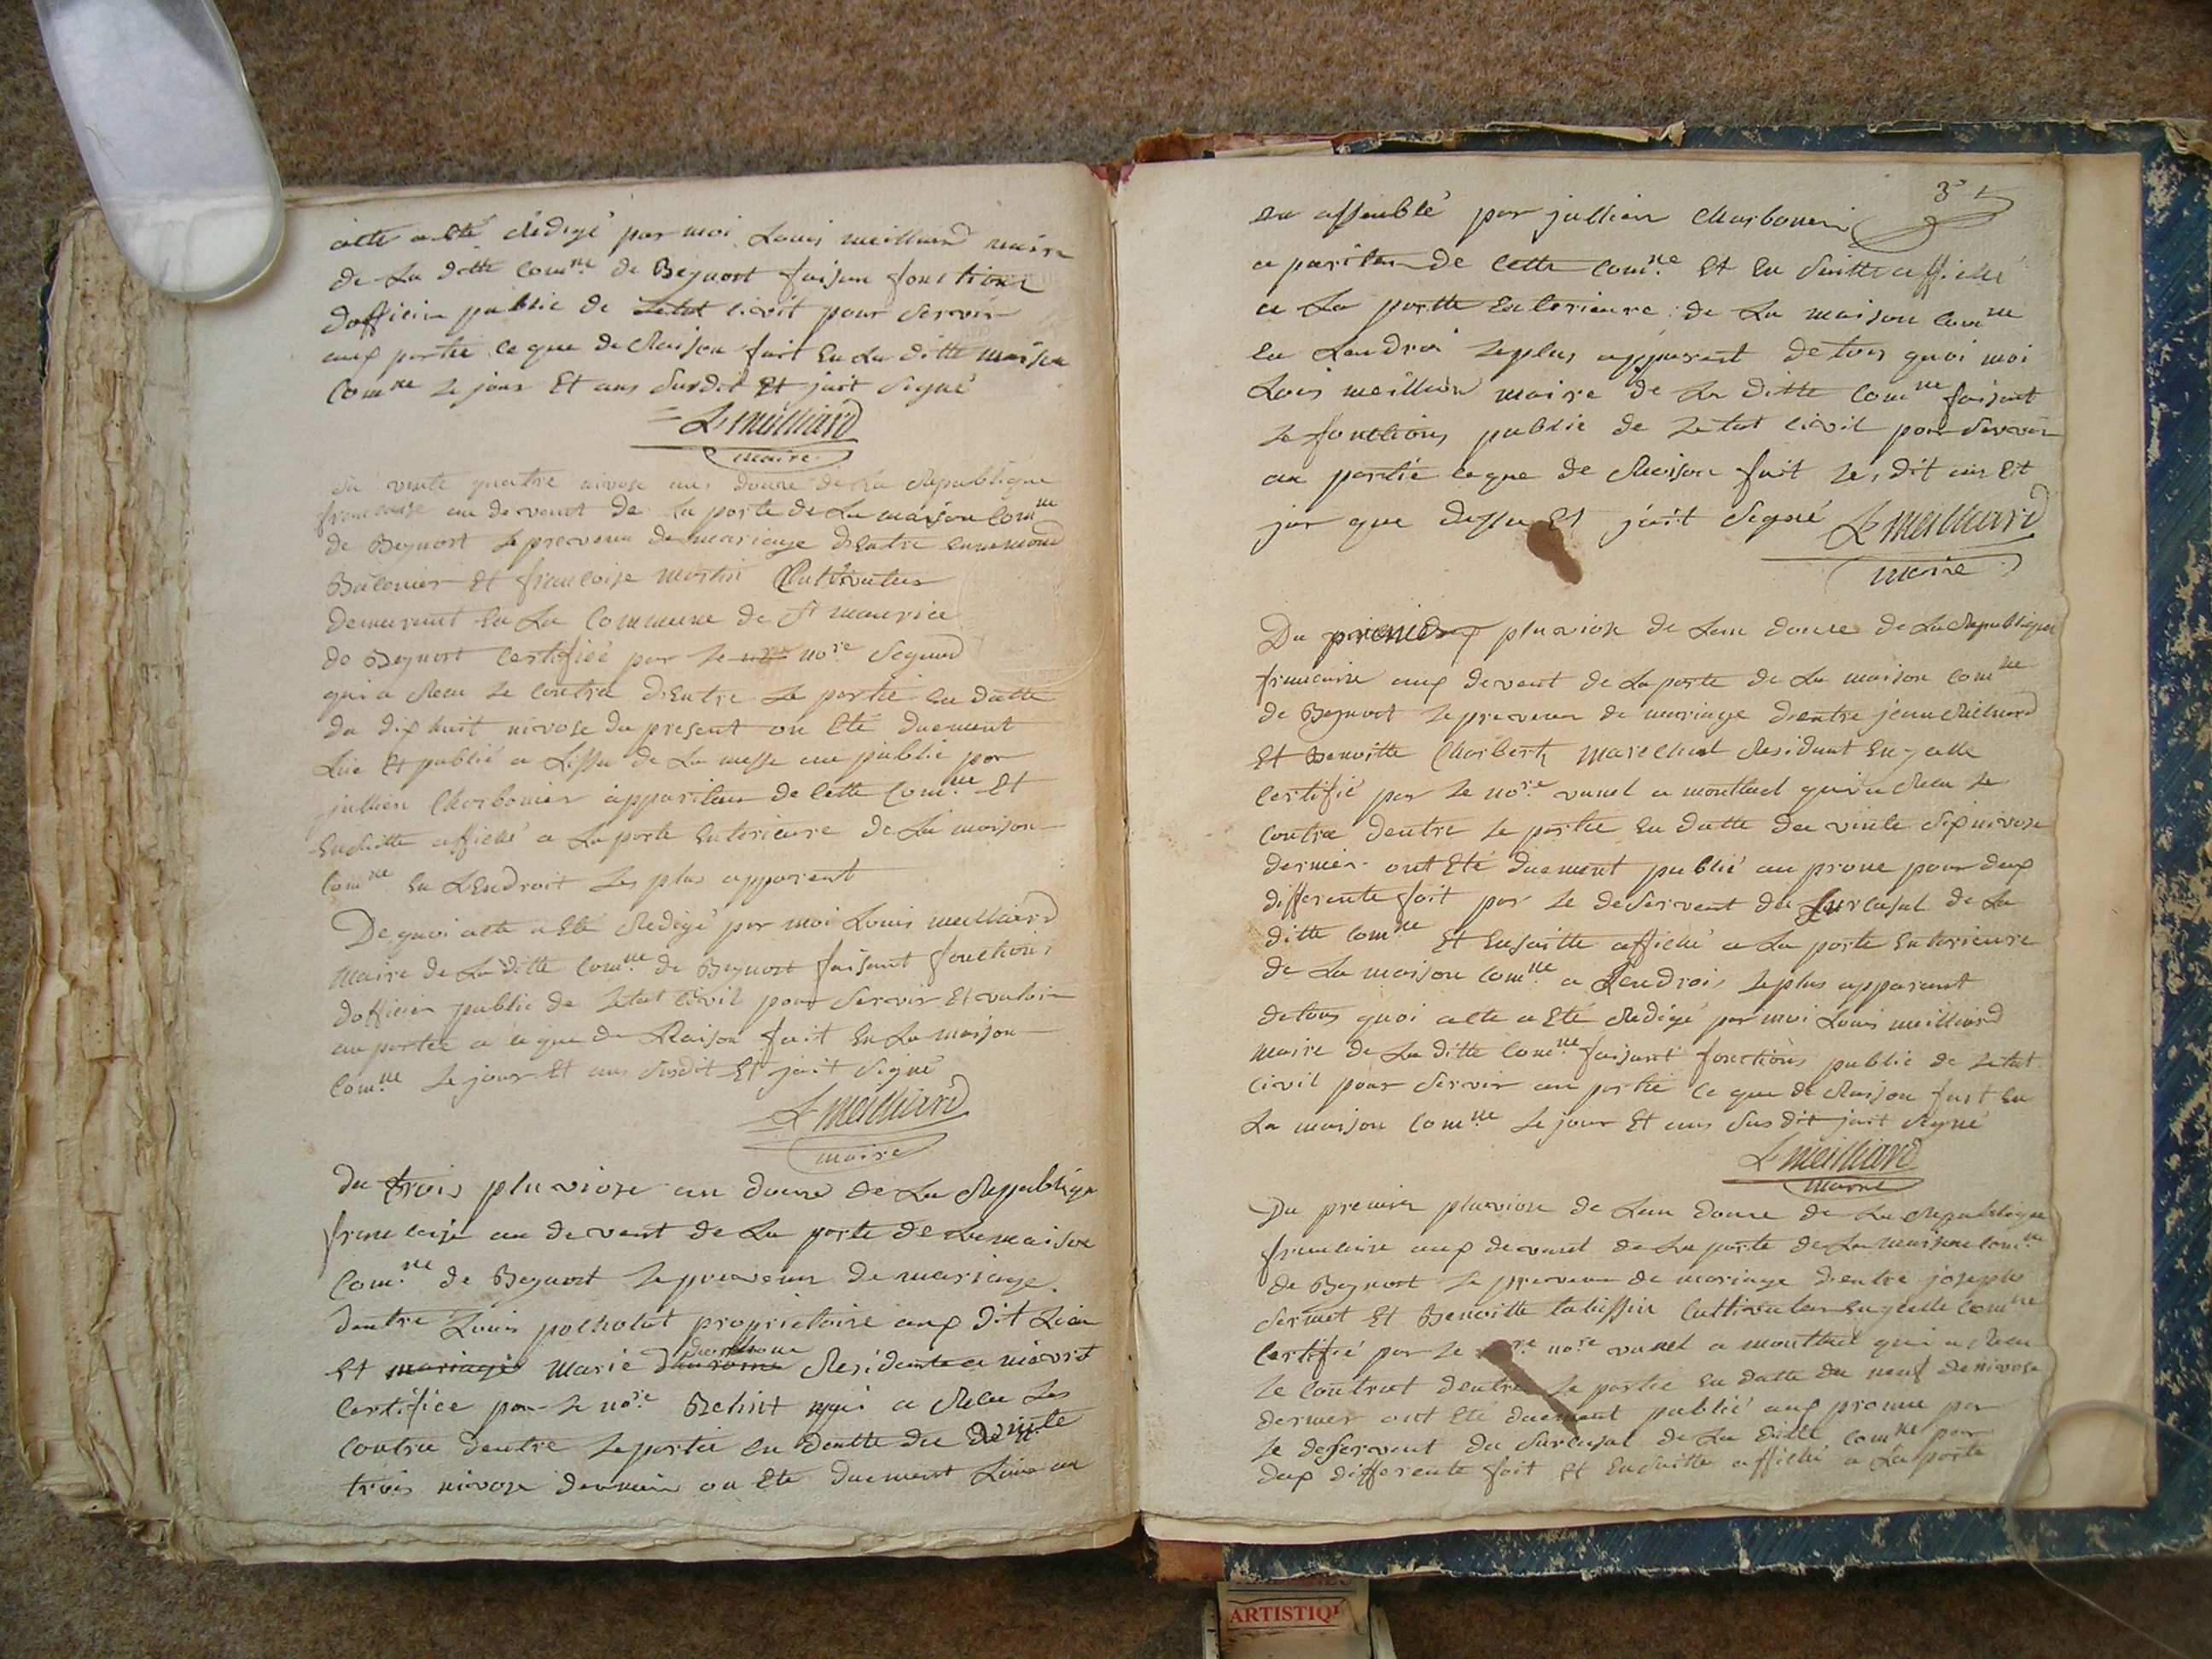 acte a eté rédigé par moi Louis meilliard maire
de La ditte Comne de Beynost faisan fonctions
dofficier public de Letat civil pour Servir
aux partie ce que de Raison fait En La ditte maison
Comne Le jour Et ans Susdit Et jait Signé
L meilliard
maire
du vente quatre nivose ans douze de La Republique
francaise au devent de La porte de La maison Comne
de Beynost Le prevenu de mariage dEntre
Et francoise martin Cultivateur
demeurant En La Commune de St maurice
de Beynost Certifiée par Le nore Seguad
qui a Recu Le Contra dEntre Le partie En datte
du dix huit nivose du present on Eté duement
Luë Et publié a Lissu de La messe au publié par
jullien Charbonier appariteur de Cette Comne Et
Ensuitte affiché a La porte Exterieure de La maison
Comne En LEndroit Les plus apparent
De quoi acte a Eté Redigé par moi Louis meilliard
Maire de La ditte Comne de Beynost faisant fonctions
dofficier public de Letat Civil pour Servir Et valoir
au partie a ce que de Raison fait En La maison
Comne Le jour Et ans Susdit Et jait Signé
L meilliard
maire
du trois pluviose an douze de La Republique
francaise au devent de La porte de La maison
Comne de Beynost Le prevenu de mariage
dentre Louis pocholat proprietaire aux dit Lieu
Et mariage Marie Residente a
Certifiée par Le nore qui a Recu Les
Contra dentre Le partie En datte du vinte
trois nivose dernier on Eté duement Luë au
32
En assemblé par jullien Charbonier
apariteur de Cette Comne Et En Suitte affiché
a La portte Exterieure de La maison Comne
En Landroi Le plus apparent de tous quoi moi
Louis meilliard maire de La ditte Comne faisant
Le fonctions public de Letat Civil pour Servir
au partie ce que de Raison fait Les dit an Et
jour que dessu Et jait Signé L meilliard
maire
Du premier pluviose de Lan douze de La Republique
francaise aux devent de La porte de La maison Comne
de Beynost Le prevenu de mariage dentre jean Richard
Et Benoitte Charbert marechal Residant En
Certifié par Le nore vanel a montluel qui a Recu Le
Contra dentre Le partie En datte du vinte Six nivose
dernier ont Eté duement publié au prone pour deux
differente foit par Le deservent du Surcusal de La
ditte Comne Et Ensuitte affiché a La porte Exterieure
de La maison Comne a Lendrois Le plus apparent
de tous quoi acte a Eté Redigé par moi Louis meilliard
maire de La ditte Comne faisant fonctions public de Letat
Civil pour Servir au partie ce que de Raison fait En
La maison Comne Le jour Et ans Susdit jait Signé
L meilliard
maire
Du premier pluviose de Lan douze de La Republique
francaise aux devant de La porte de La maison Comne
de Beynost Le prevenu de mariage dentre joseph
Sermet Et Benoitte Cultivateur En ycelle Comne
Certifié par Le nore vanel a montluel qui a Recu
Le Contrat dentre Le partie En datte du neuf de nivose
dernier ont Eté duement publié aux pronne par
Le deservent du Surcusal de La ditte Comne pour
deux differente foit Et Ensuitte affiché a La porte
ARTISTIQ